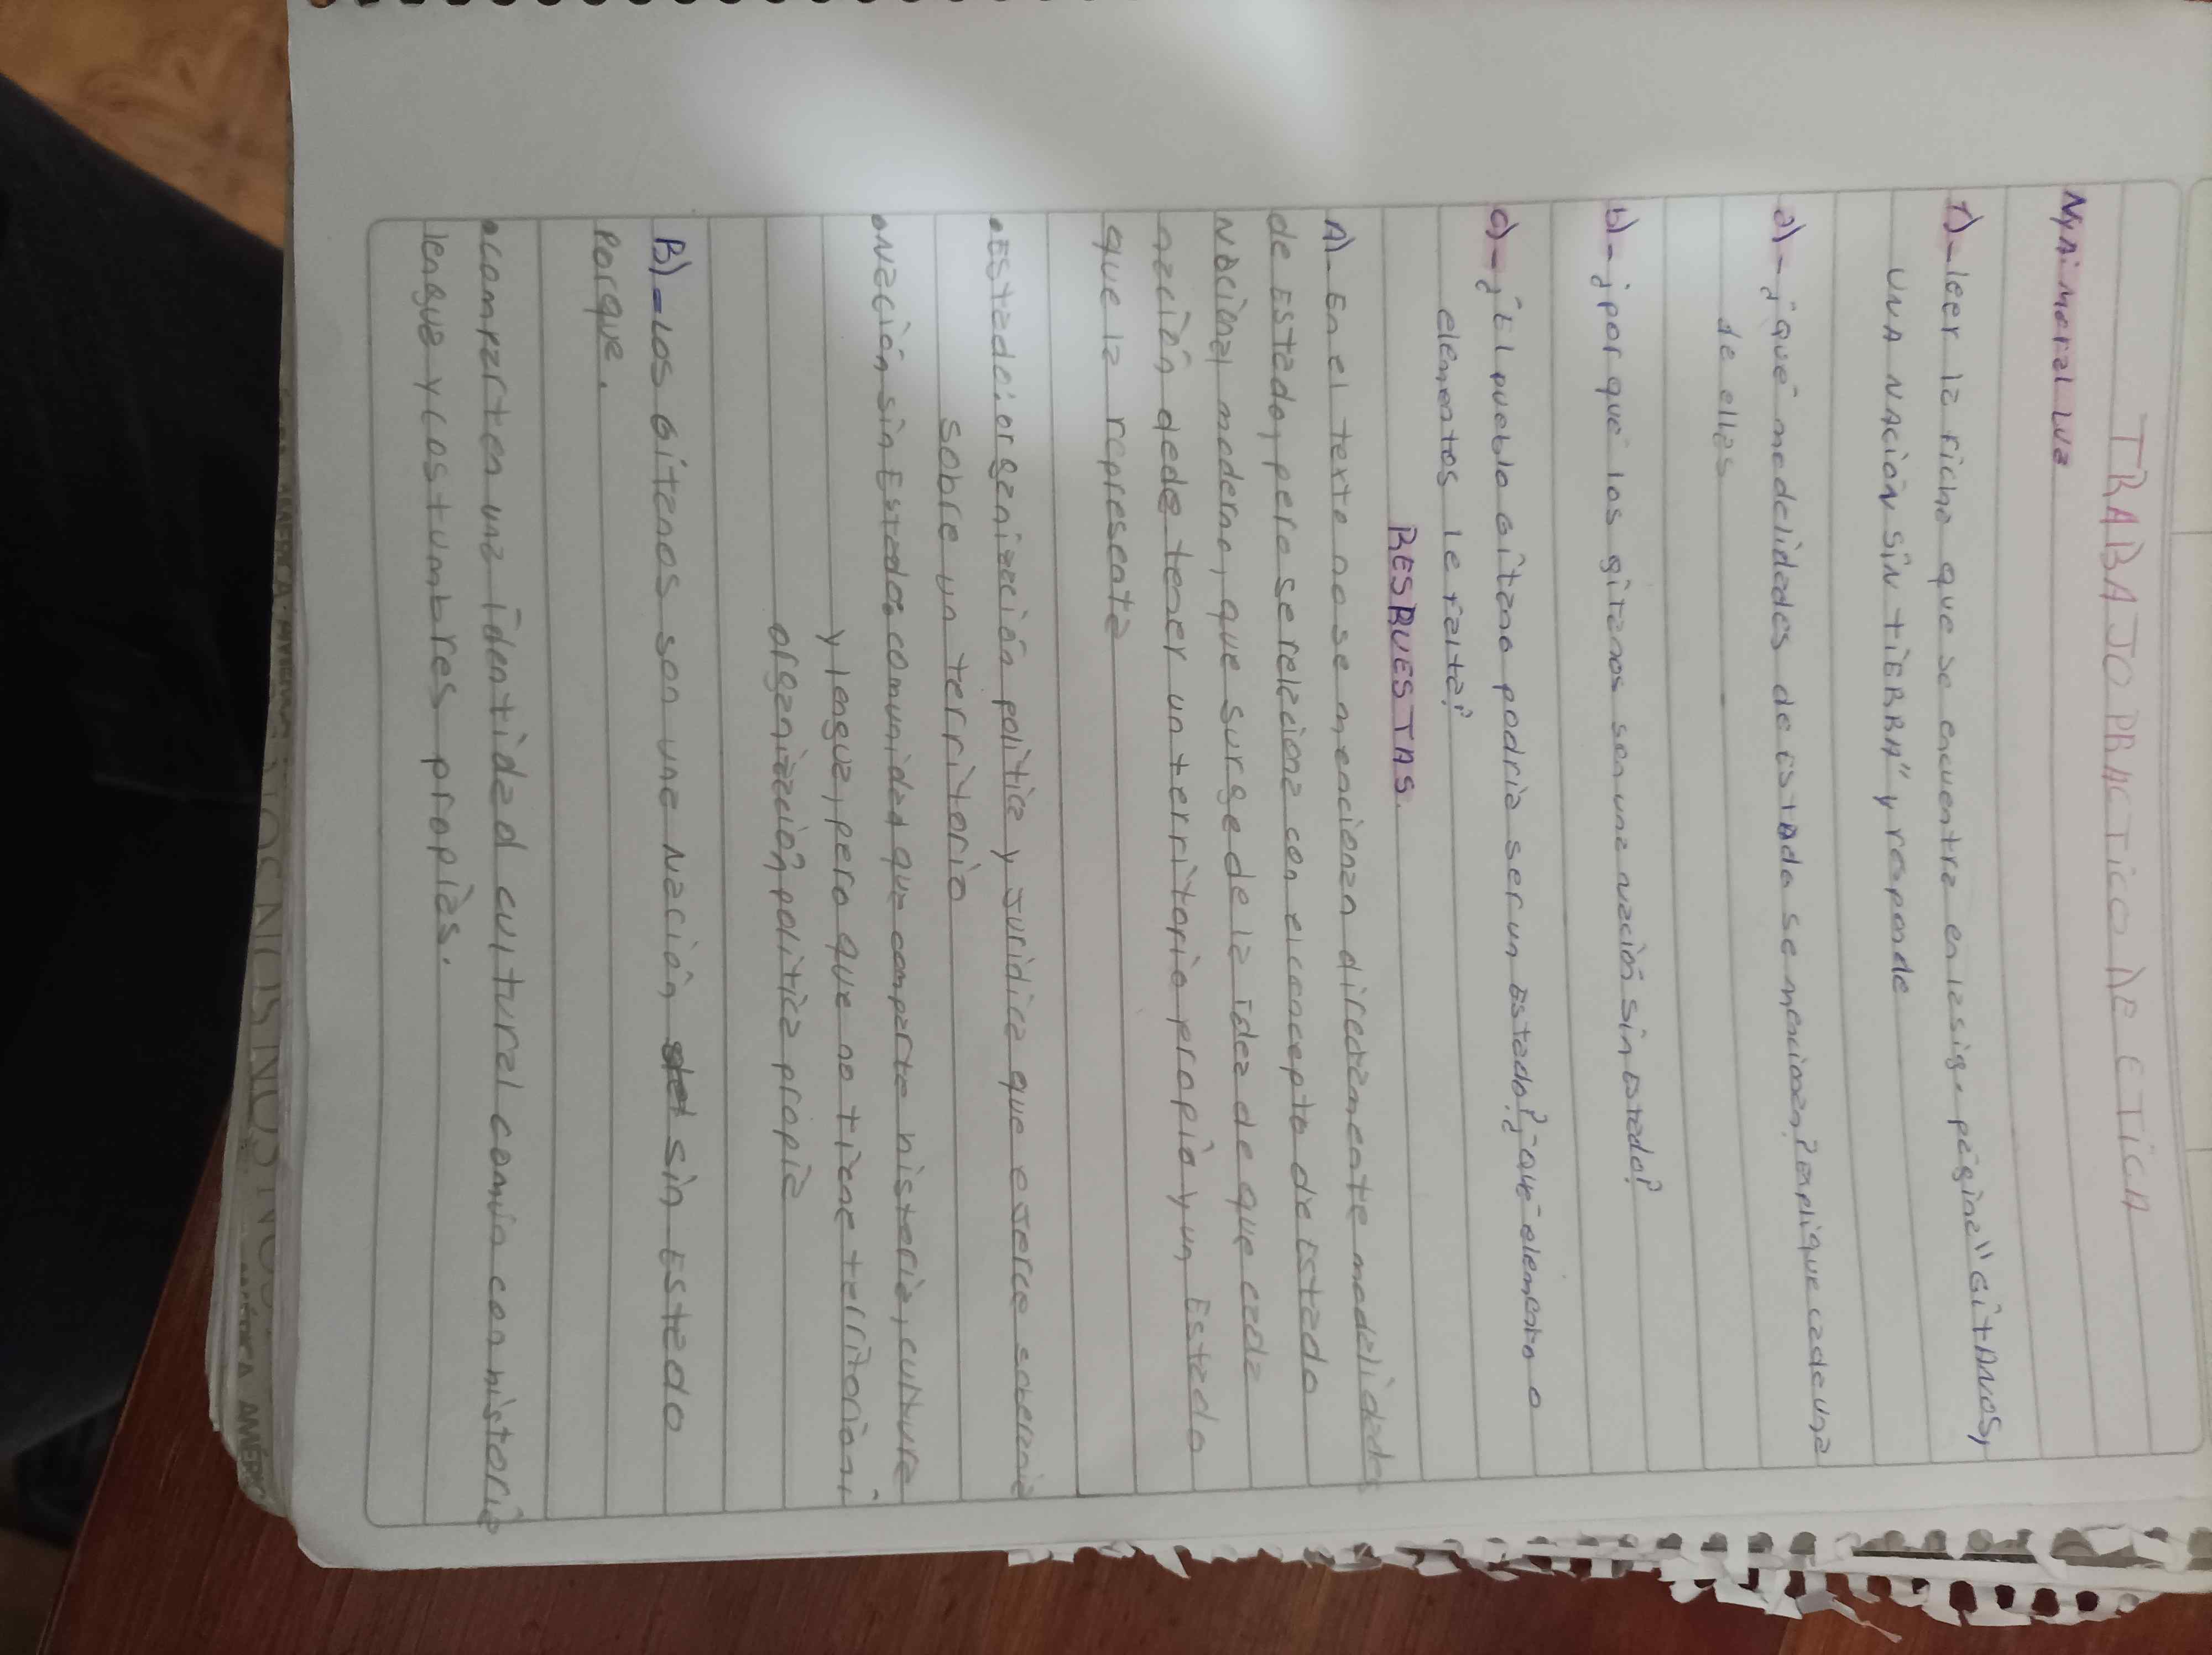 TRABAJO PRACTICO DE ETICA
NyA: Moral Luz
1)-leer la ficha que se encuentra en la sig. página "GITANOS,
UNA NACIÓN SIN TIERRA" y responde
a)-¿qué modelidades de Estado se mencionan? Explique cada una
de ellas
b)-¿por qué los gitanos son una nación sin Estado?
c)-¿El pueblo Gitano podría ser un Estado? ¿Qué elemento o
elementos le falta?
RESPUESTAS.
A)-En el texto no se mencionan directamente modalidades
de Estado, pero se relaciona con el concepto de Estado
Nacional moderno, que surge de la idea de que cada
nación dede tener un territorio propio y un Estado
que la represente
•Estado: organización política y Juridica que eJerce soberania
sobre un territorio
•Nación sin Estado: comunidad que comparte historia, cultura
y lengua, pero que no tiene territorio ni
organización política propia
B)-Los Gitanos son una Nación sin Estado
Porque.
•comparten una identidad cultural común con historia
lengua y costumbres propias.